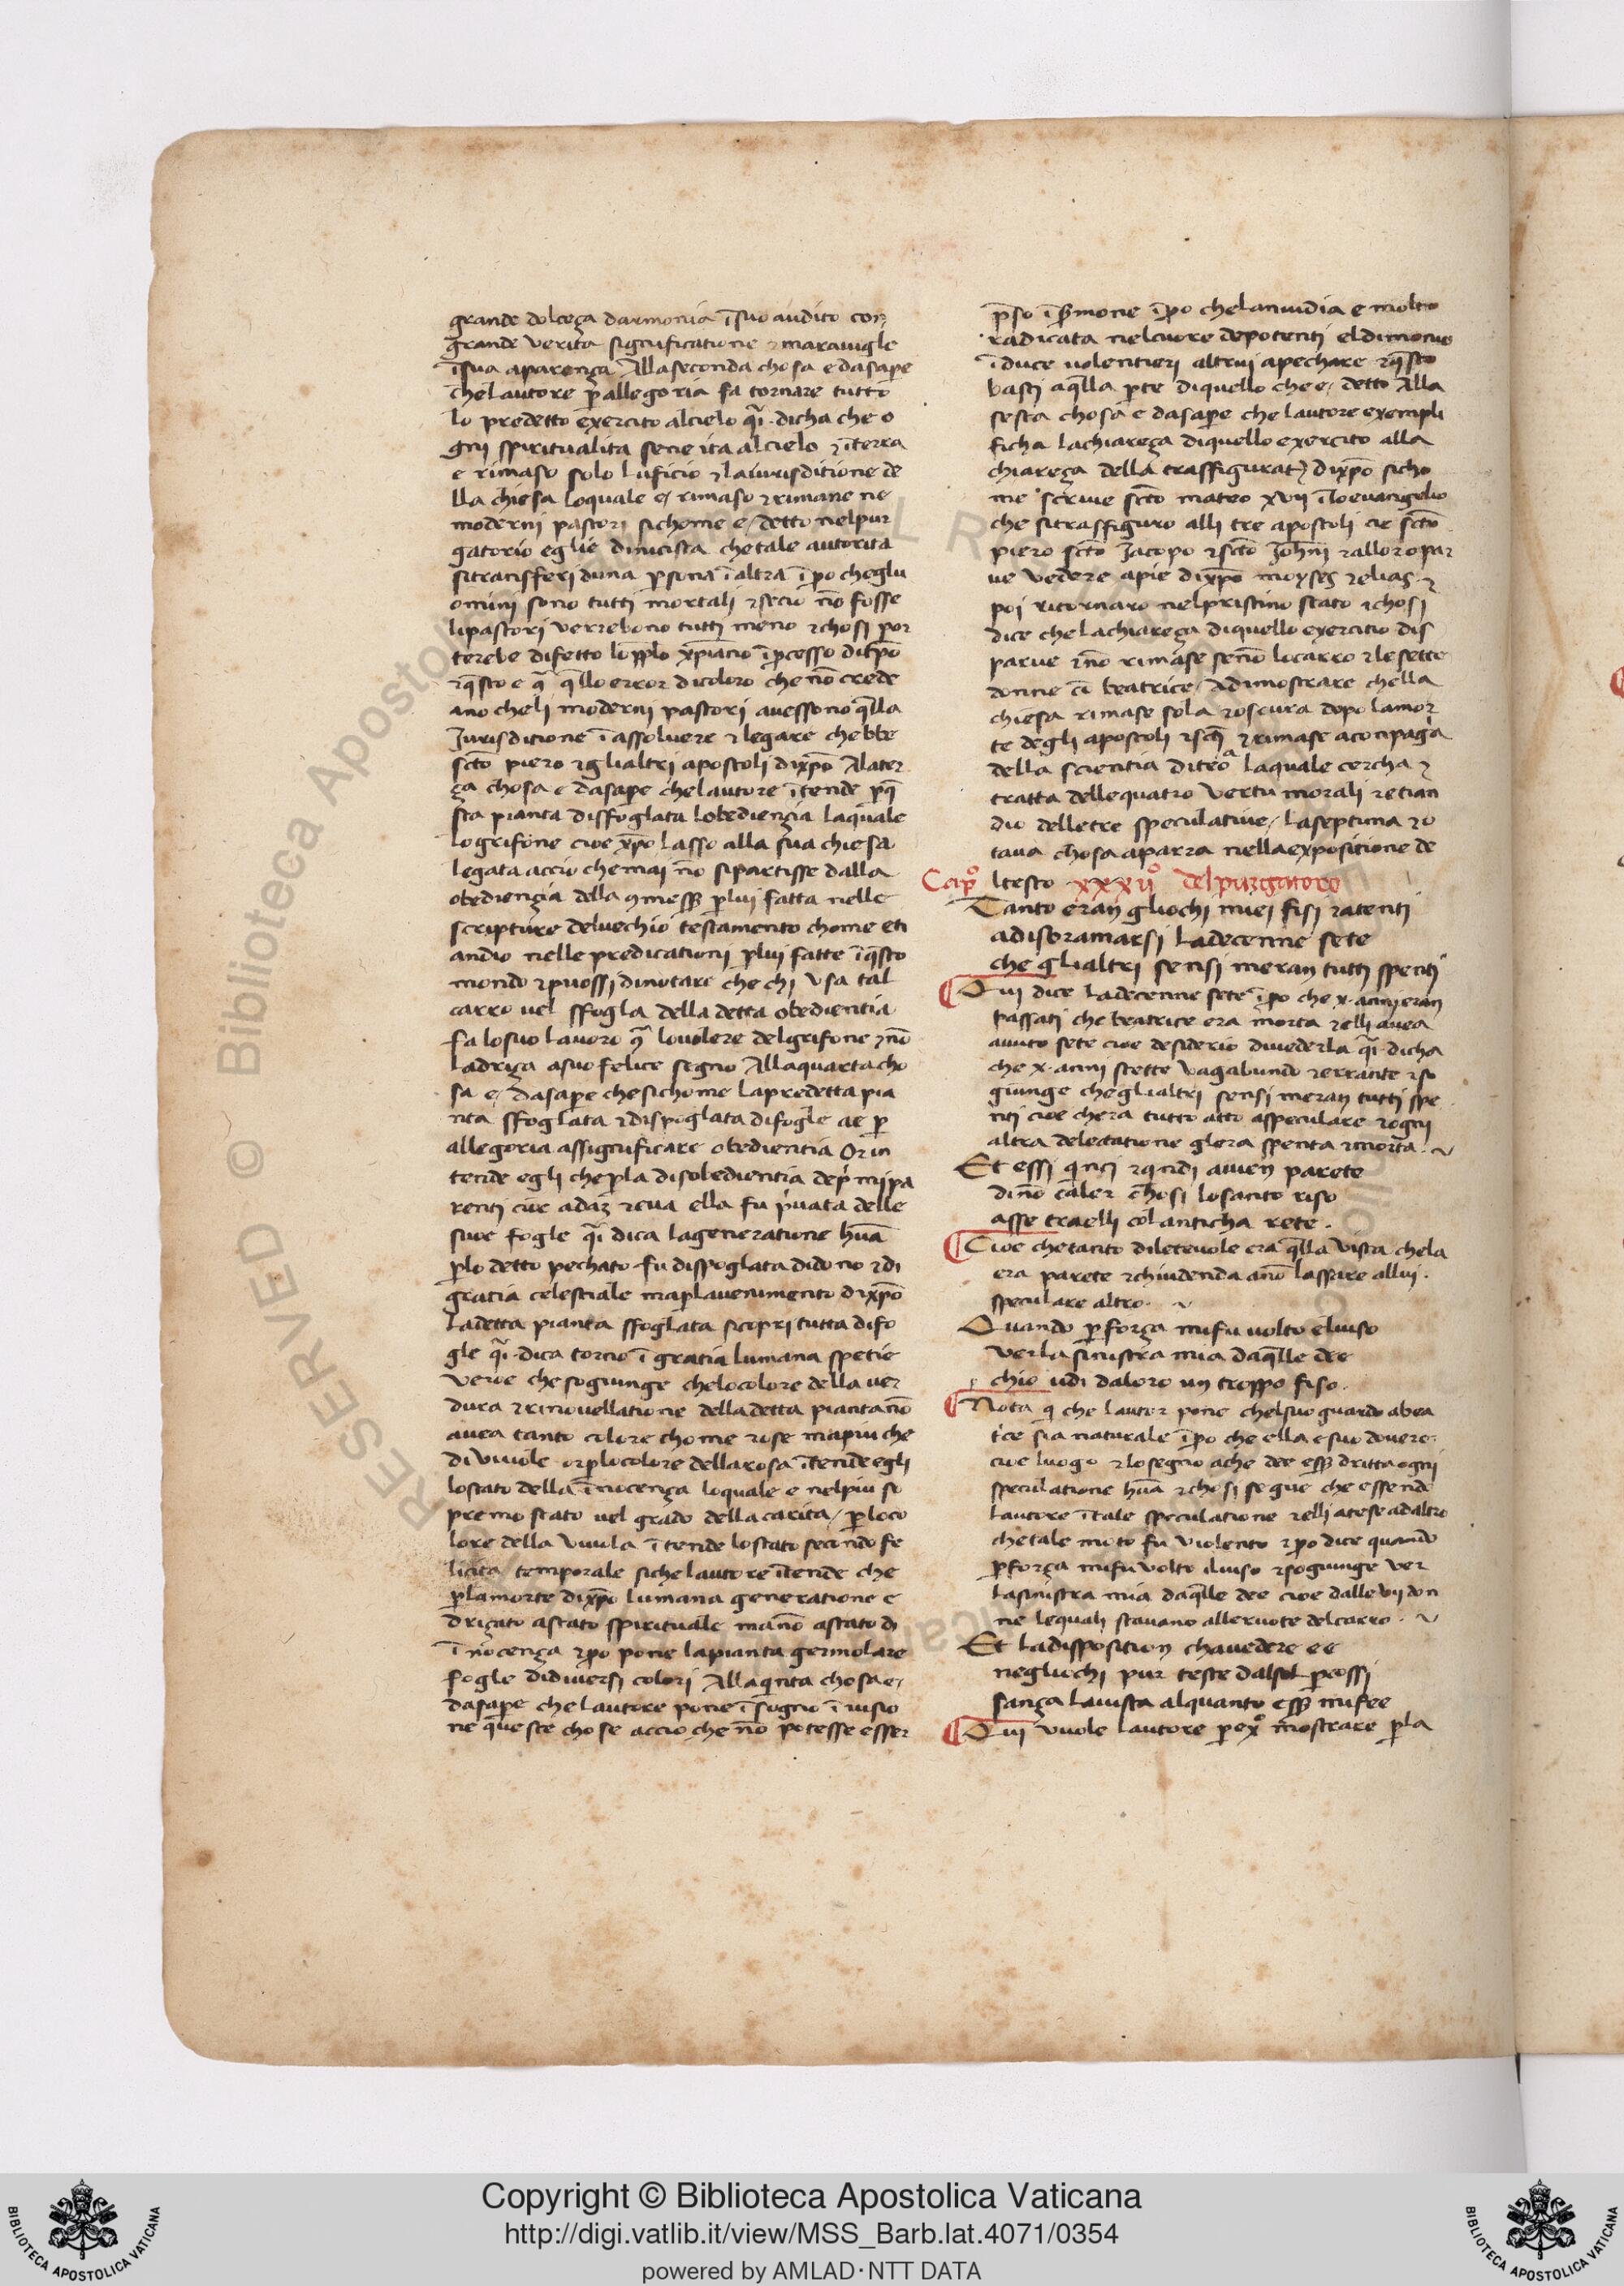 grande dolceça darmonia īsuo audito con
grande verita significatione ⁊ marauigle
īsua aparença Alla seconda chosa e dasape
īchel autore p allegoria fa tornare tutto
lo predetto exercito alcielo q̄i dicha che o
gni spiritualita sene ita alcielo ⁊ īterra
e rimaso solo luficio ⁊ la iurisditione de
lla chiesa loquale e rimaso ⁊ rimane ne
moderni pastori sichome e detto nelpur
gatorio eglie dinicista chetale autorita
sitransferi duna psona ī altra īpo cheglu
omini sono tutti mortali ⁊ secio nō fosse
lipastori verrebono tutti meno ⁊ chosi por
terebe difetto lopplo xpiano īpcesso ditpo
⁊ q̄sto e 9ᵃ q̄llo error dicoloro che nō crede
ano cheli moderni pastori auessono q̄lla
Jurisditione ī assoluere ⁊ legare chebbe
scto piero ⁊ glialtri apostoli dixpo Alater
ça chosa e dasape chelautore ītende pq̄
sta pianta disfoglata lobediençia laquale
logrifone cioe xpo lasso alla sua chiesa
legata accio chemai nō sipartisse dalla
obediençia della 9messꝫ plui fatta nelle
scripture deluechio testamento chome eti
andio nelle predicationi plui fatte īq̄sto
mondo ⁊ puossi dinotare che chi vsa tal
carro uel sfogla della detta obedientia
fa losuo lauoro 9ᵃ louolere delgrifone ⁊ nō
ladriça asuo felice segno Allaquarta cho
sa e dasape chesichome lapredetta pia
nta sfoglata ⁊ dispoglata difogle ae p
allegoria assignificare obedientia Or in
tende egli chepla disobedientia dep̄mi pa
renti cioe adaꝫ ⁊ eua ella fu p̄uata delle
sue fogle q̄i dica lageneratione hūa
plo detto pechato fu dispoglata didono ⁊ di
gratia celestiale maplauenimento dixpo
ladetta pianta sfoglata sicopri tutta difo
gle q̄i dica torno ī gratia lumana spetie
Veroe chesogiunge chelocolore della uer
dura ⁊ rinouellatione delladetta pianta nō
auea tanto colore chome rose mapiu che
di viuole or plocolore dellarosa ītende egli
lostato della īnocença loquale e nelpiu so
premo stato uel grado della carita / ploco
lore della viuola ītende lostato secondo fe
licita temporale sichelautore ītende che
plamorte dixpo lumana generatione e
driçato astato spirituale ma nō astato di
īnocença ⁊ po pone lapianta germolare
fogle didiuersi colori Allaq̄nta chosa e
dasape che lautore pone ī sogno ī uisio
ne queste chose accio che nō potesse esser
pso ī sermone īpo chelanuidia e molto
radicata nelcuore depotenti eldimonio
īduce uolentieri altrui apechare ⁊ q̄sto
basti aq̄lla pte diquello che e detto Alla
sesta chosa e dasape che lautore exempli
ficha lachiareça diquello exercito alla
chiareça della trasfigurat dixpo sicho
me scriue scto mateo xvii īlo euangelio
che sitrasfiguro alli tre apostoli cioe scto
piero scto Jacopo ⁊ scto Johni ⁊ alloro par
ue vedere apie dixpo moyses ⁊ elias ⁊
poi ritornaro nelpristino stato ⁊ chosi
dice che lachiareça diquello exercitio dis
parue ⁊ nō rimase senō locarro ⁊ lesette
donne cū beatrice Adimostrare chella
chiesa rimase sola ⁊ oscura dopo lamor
te degli apostoli ⁊ scī ⁊ rimase aconpaga
della scientia diteo laquale cercha ⁊
tratta dellequatro vertu morali ⁊ etian
dio delletre speculatiue / laseptima ⁊ o
taua chosa aparra nellaexpositione de
Capº ltesto xxxiiº del purgatoro
Tanto eran gliochi miei fisi ⁊ atenti
adisbramarsi ladecenne sete
che glialtri sensi meran tutti spenti
Qui dice ladecenne sete īpo che x anni eran
passati che beatrice era morta ⁊ elli auea
auuto sete cioe desiderio diuederla q̄i dicha
che x anni stette vagabundo ⁊ errante ⁊ so
giunge cheglialtri sensi meran tutti spe
nti cioe chera tutto atto aspeculare ⁊ ogni
altra delectatione glera spenta ⁊ morta
Et essi q̄nci ⁊ q̄ndi auien parete
di nō caler chosi losanto riso
asse traelli col anticha rete
Cioe chetanto diletevole era q̄lla vista chela
era parete ⁊ chiudenda anō lassare allui
speculare altro
Quando pforça mifu uolto eluiso
Verla sinistra mia daq̄lle dee
chio udi daloro un troppo fiso
Nota q̄ che lautor pone chelsuo guardo abea
tce sia naturale īpo che ella e suo douere
cioe luogo ⁊ lo segno ache dee essꝫ dritta ogni
speculatione hūa ⁊ chosi segue che essendo
lautore ītale speculatione ⁊ elli atese adaltro
chetale moto fu violento ⁊ po dice quando
pforça mifu volto iluiso ⁊ sogiunge ver
lasinistra mia daq̄lle dee cioe dalle vii don
ne lequali stauano alleruote delcarro
Et ladisposition chauedere ee
negliochi pur teste dalsol pcossi
sança lauista alquanto essꝫ mifee
Qui vuole lautore p exº mostrare pla
Copyright © Biblioteca Apostolica Vaticana
http://digi.vatlib.it/view/MSS_Barb.lat.4071/0354
powered by AMLAD·NTT DATA